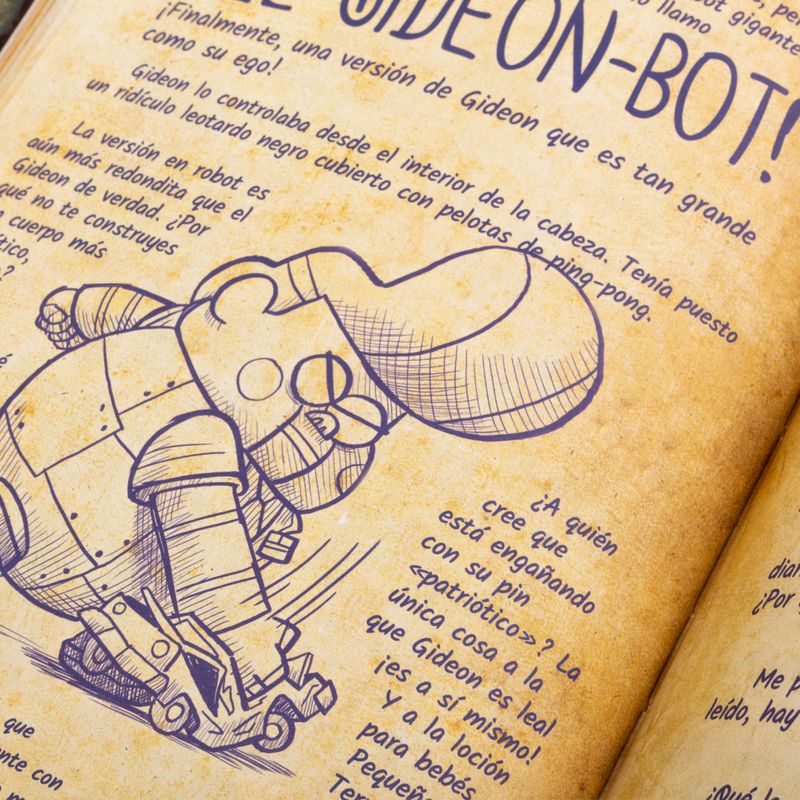 bot gigante
llamo
EL GIDEON-BOT!
¡Finalmente, una versión de Gideon que es tan grande
como su ego!
Gideon lo controlaba desde el interior de la cabeza. Tenía puesto
un ridículo leotardo negro cubierto con pelotas de ping-pong.
La versión en robot es
aún más redondita que el
Gideon de verdad. ¿Por
qué no te construyes
cuerpo más
¿A quién
cree que
está engañando
con su pin
«patriótico»? La
única cosa a la
que Gideon es leal
¡es a sí mismo!
Y a la loción
para bebés
Pequeñ
que
con
¿Por
Me p
leído, hay
¿Qué